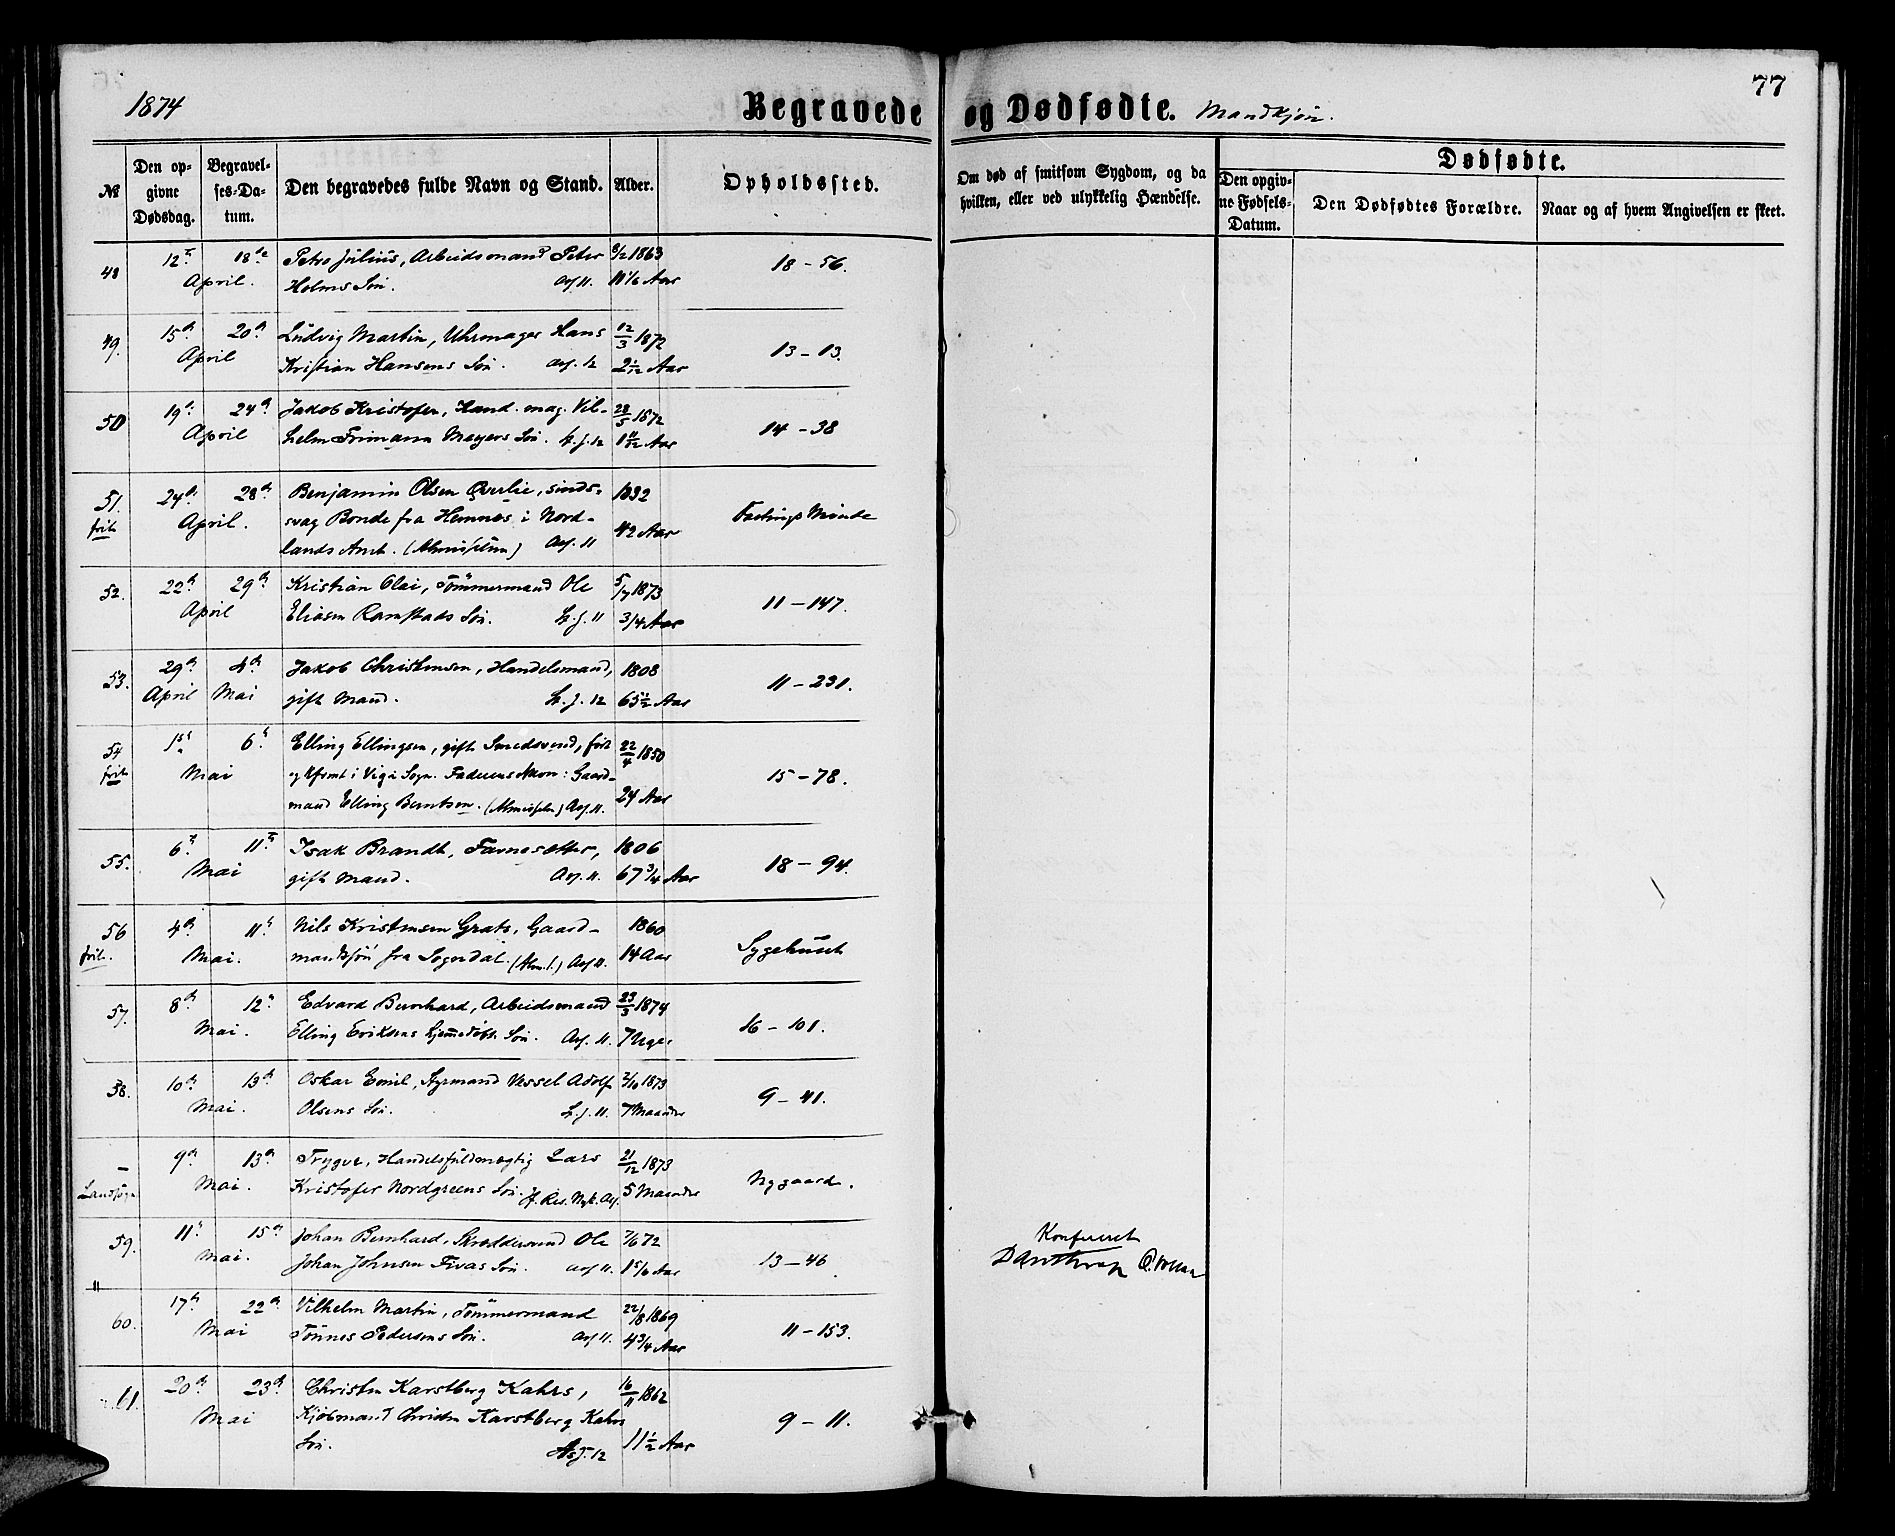 1874
Begravede og Dødfødte. Mandkjøn.
77
№
Den opgivne Dødsdag.
Begravelses-Datum.
Den begravedes fulde Navn og Stand.
Alder.
Opholdssted.
Om død af smitsom Sygdom, og da hvilken, eller ved ulykkelig Hændelse.
Dødfødte.
Den opgivne Fødsels-Datum.
Den Dødfødtes Forældre.
Naar og af hvem Angivelsen er skeet.
48 12te 18de Petro Julius, Arbeidsmand Peter 8/2 1863 18 – 56.
April. Holms Søn. Asf 11. 11 1/6 Aar
49. 15de 20de Ludvig Martin, Uhrmager Hans 12/3 1872 13 – 13.
April Kristian Hansens Søn. Asf. 12 2 1/12 Aar
50 19de 24de Jakob Kristofer, Hand. mag. Vil- 28/5 1872 14 – 38
April helm Frimann Meyers Søn. h. j. 12 1 11/12 Aar
51. 24de 28de Benjamin Olsen Øverlie, sinds- 1832
frit April. svag Bonde fra Hemnes i Nord- 42 Aar
lands Amt. Asf. 11
52. 22de 29de Kristian Olai, Tømmermand Ole 5/7 1873 11 – 147.
April Eliasen Ramstads Søn. h. j. 11 3/4 Aar
53. 29de 4de Jakob Christensen, Handelsmand, 1808 11 – 231.
April Mai gift Mand. h. j. 12 65 1/2 Aar
54 1ste 6te Elling Ellingsen, gift Smedsvend, født 22/4 1850
frit Mai Sogn. Faderens Navn: Gaard- 15 – 78.
mand Elling Berntsen. Asf. 11. 24 Aar
55. 6te 11te Isak Brandt, 1806 18 – 94.
Mai gift Mand. Asf. 11. 67 3/4 Aar
56 4de 11te Nils Kristensen Grats, Gaard- 1860 Sygehuset
frit. Mai. fra Sogndal. (Alm.) Asf 11. 14 Aar
57. 8de 12te Edvard Bernhard, Arbeidsmand 23/3 1874 16 – 101.
Mai. Elling Eriksens Søn. Asf. 11. 7 Uger
58. 10de 13de Oskar Emil, Styrmand Vessel Adolf 2/10 1873 9 – 41.
Mai. Olsens Søn. h. j. 11. 7 Maaneder
– 9de 13de Trygve, Handelsfuldmægtig Lars 21/12 1873 Nygaard.
Landsogn Mai. Kristofer Nordgreens Søn. 5 Maaneder
59. 11te 15de Johan Bernhard, Skræddersvend Ole 7/6 72 13 – 46
Mai. Johan Johnsen Søn. Asf 11. 1 5/6 Aar
Konfereret
60. 17de 22de Vilhelm Martin, Tømmermand 22/8 1869 11 – 153.
Mai Tønnes Pedersens Søn. Asf 11. 4 3/4 Aar
61. 20de 23de Christen Karstberg Kahrs, 16/11 1862 9 – 11.
Mai Kjøbmand Christen Karstberg Kahrs
Søn. Asf. 12 11 1/2 Aar